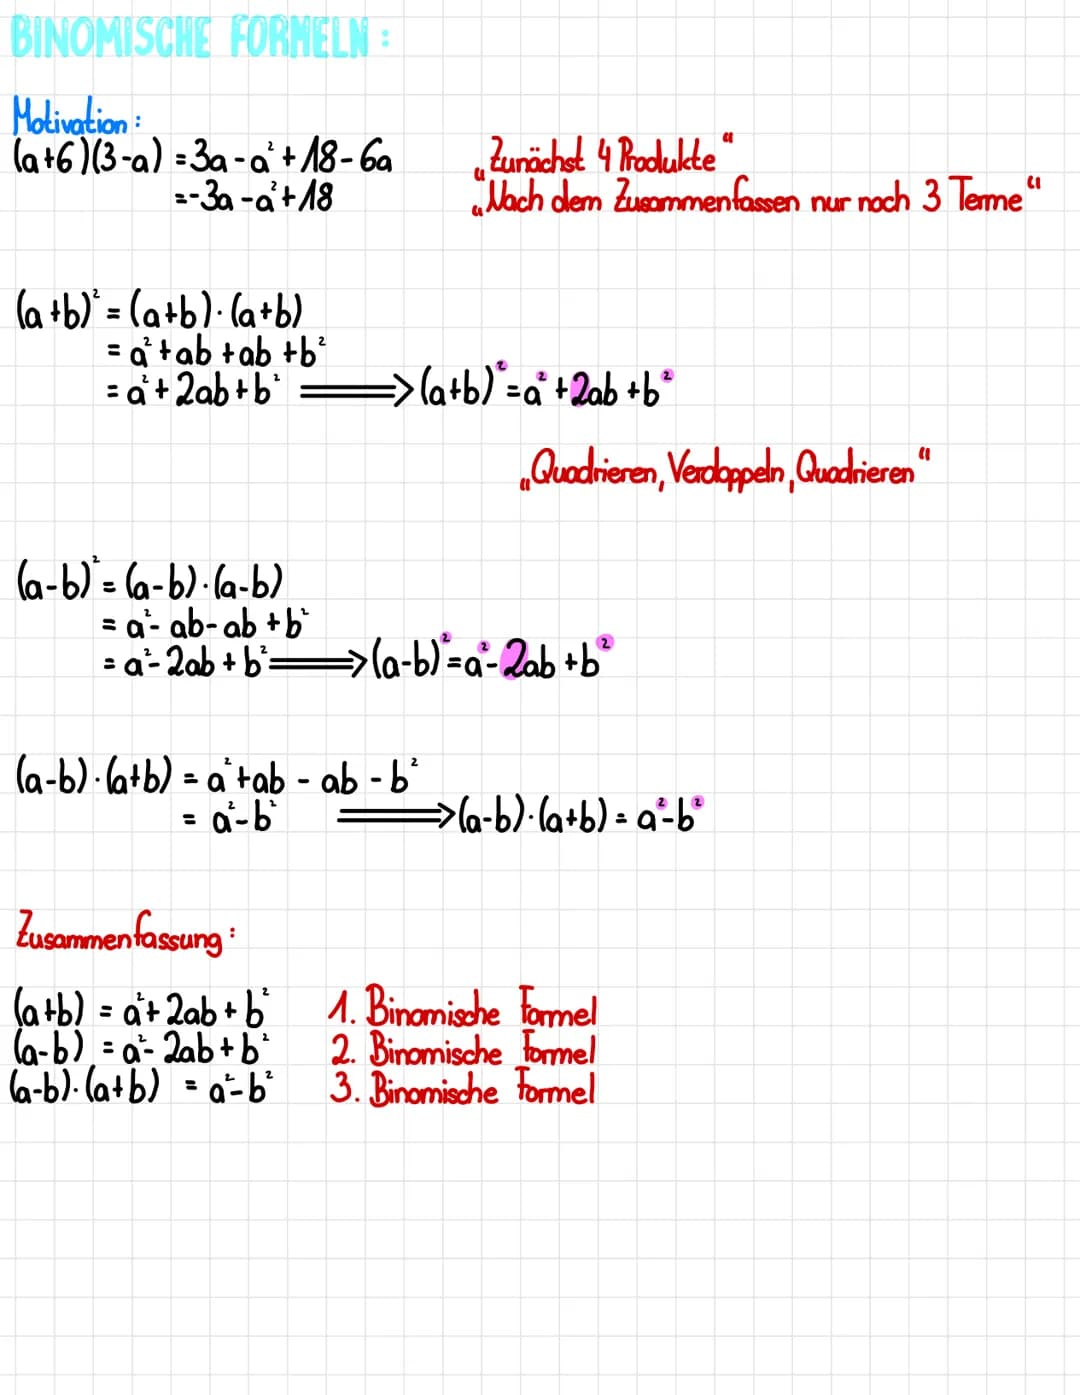 BINOMISCHE FORMELN:
Motivation:
(a+6)(3-a) = 3a - a² + 18 - 6a „Zunächst 4 Produkte“
= -3a - a² + 18 „Nach dem Zusammenfassen nur noch 3 Terme“
(a+b)² = (a+b)·(a+b)
= a² + ab + ab + b²
= a² + 2ab + b² ⟹ (a+b)² = a² + 2ab + b²
„Quadrieren, Verdoppeln, Quadrieren“
(a-b)² = (a-b)·(a-b)
= a² - ab - ab + b²
= a² - 2ab + b² ⟹ (a-b)² = a² - 2ab + b²
(a-b)·(a+b) = a² + ab - ab - b²
= a² - b² ⟹ (a-b)·(a+b) = a² - b²
Zusammenfassung:
(a+b) = a² + 2ab + b² 1. Binomische Formel
(a-b) = a² - 2ab + b² 2. Binomische Formel
(a-b)·(a+b) = a² - b² 3. Binomische Formel